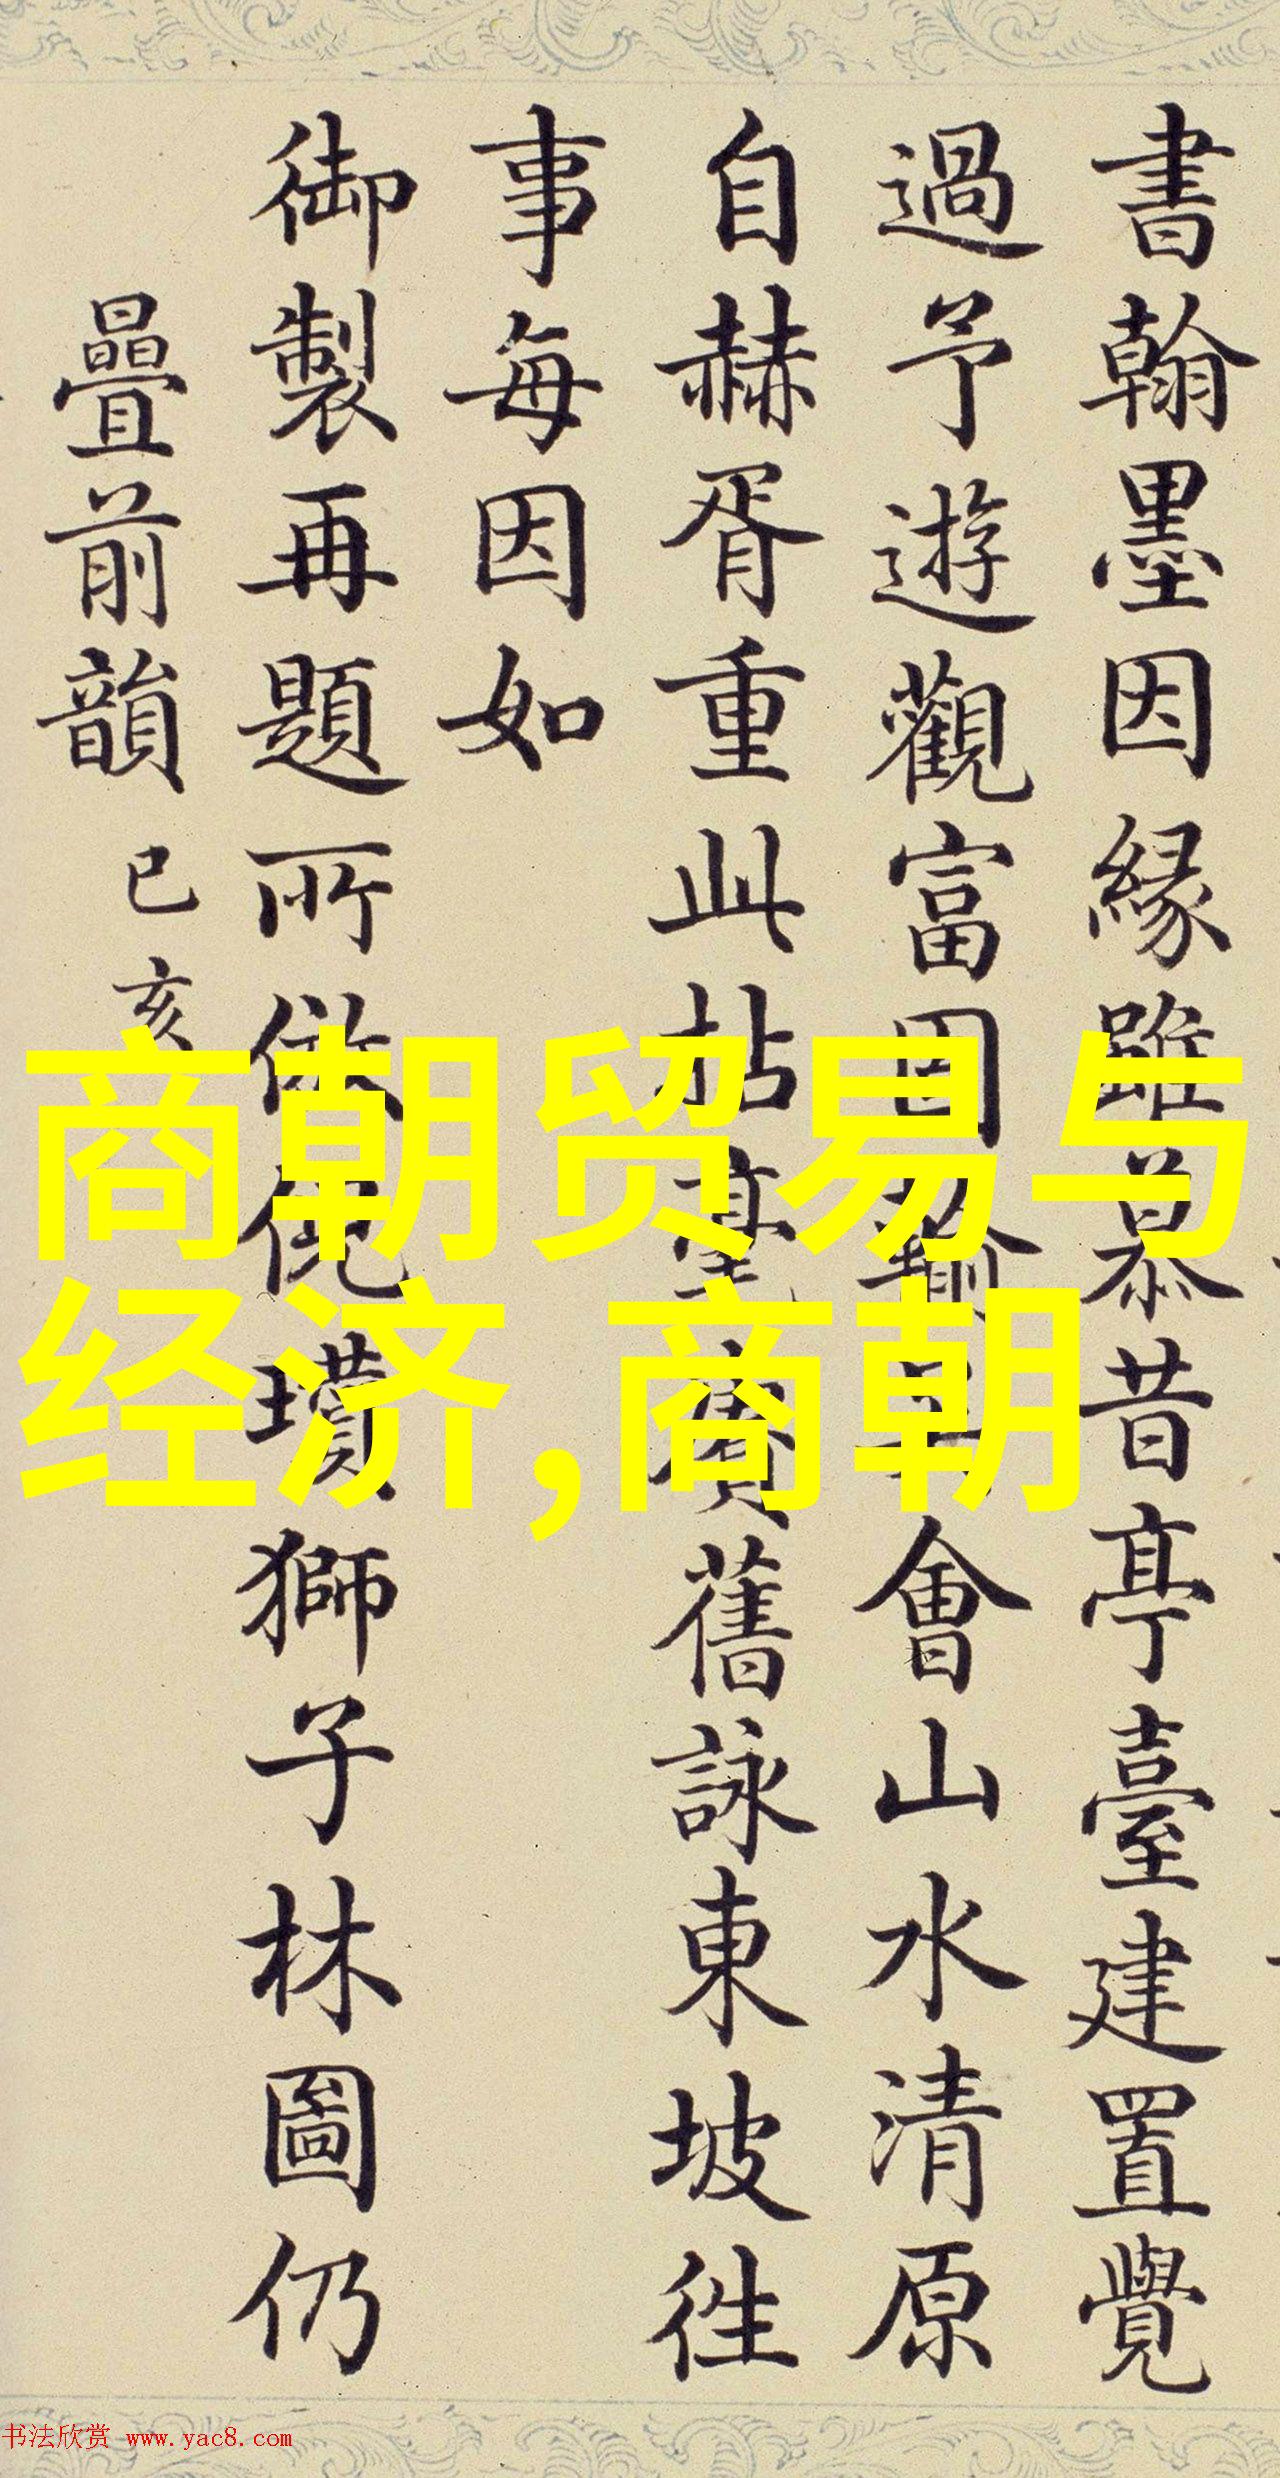 書翰墨因緣雖慕昔亭臺建置覺
過予遊觀富固輸會山水清原
自赫胥重此拈毫賡舊詠東坡徃
事每因如
御製再題所倣倪瓚獅子林圖仍
疊前韻 已亥
商朝贸易与
经济,商朝
书法欣赏 www.yac8.com